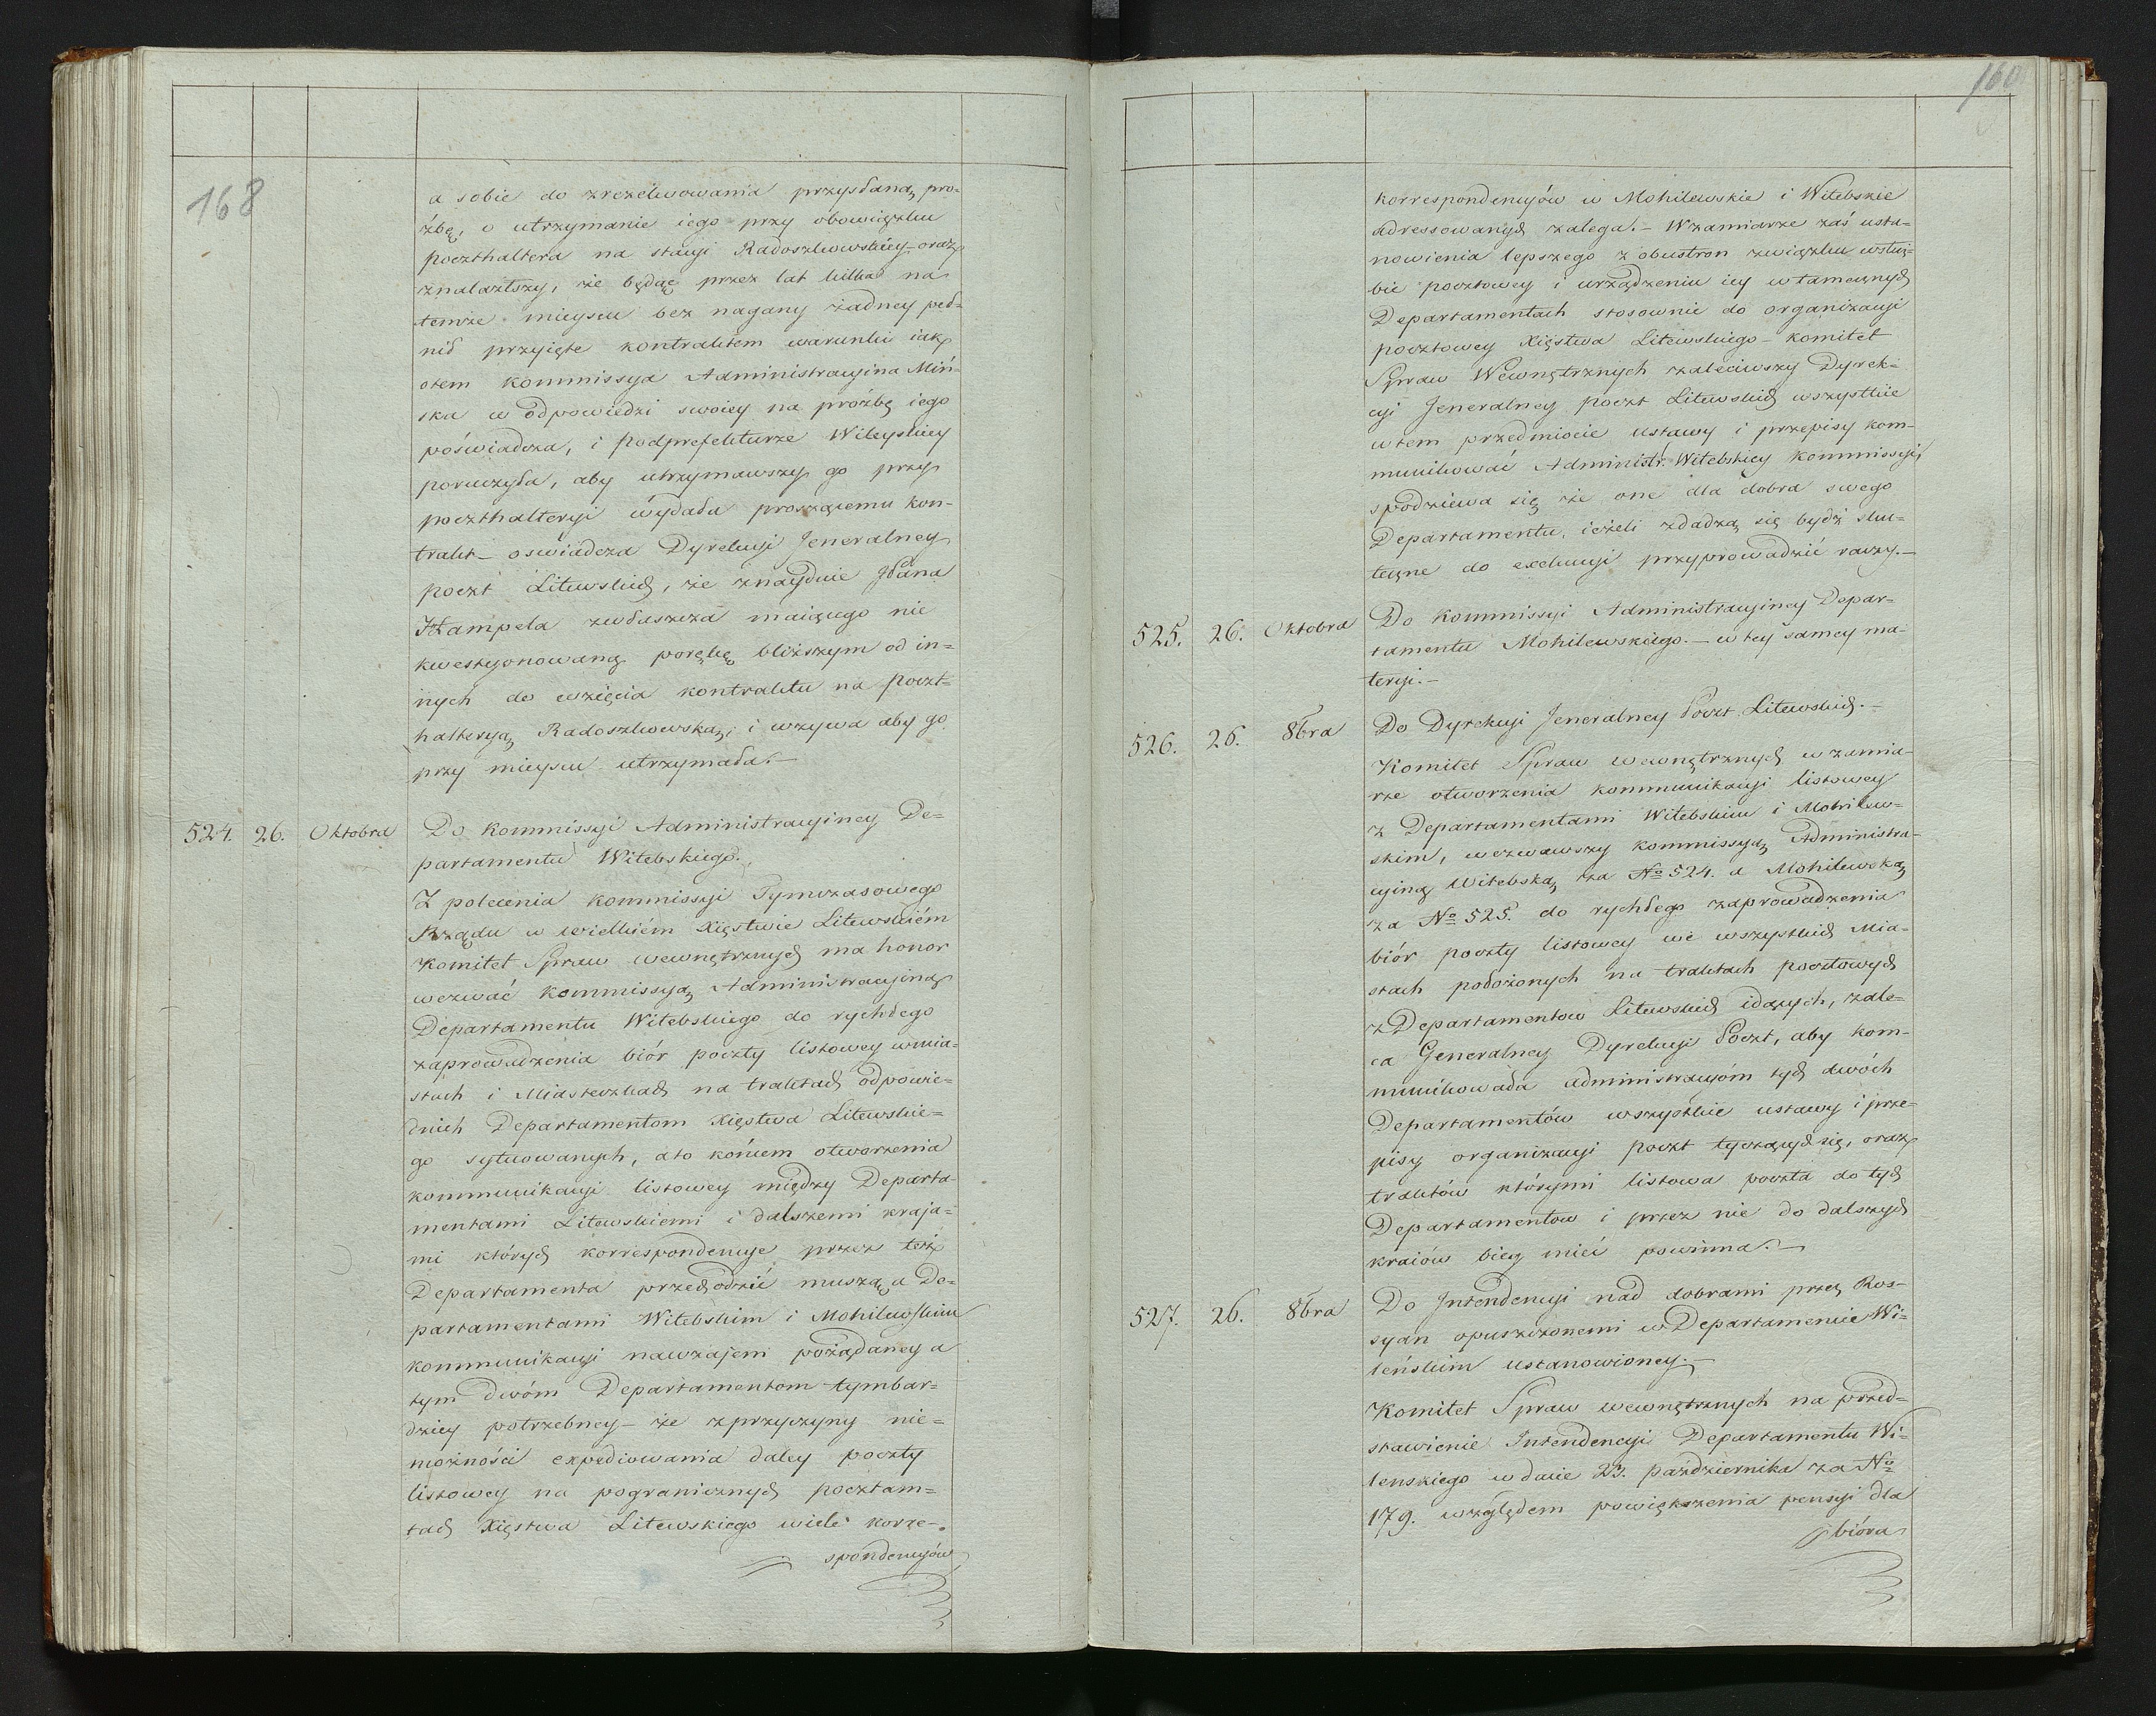 168
a sobie do zrezelwowania przysłaną pro-
źbę, o utrzymanie iego przy obowiązku
poczthaltera na stacyi Radoszkowskiey oraz
znalaztszy, że będąc przez lat kilka na
temże mieyscu bez nagany żadney peł-
nił przyięte kontraktem warunki iak
otem Kommissya Administracyina Miń-
ska w odpowiedzi swoiey na proźbę iego
poświadcza, i Podprefekturze Wileyskiey
poruczyła, aby utrzymawszy go przy
poczthalteryi wydała proszącemu kon-
trakt – oświadcza Dyrekcyi Jeneralney
poczt Litewskich, że znayduie JPana
Sztampela zwłaszcza maiącego nie
kwestyonowaną porękę bliższym od in-
nych do wzięcia kontraktu na poczt-
halteryą Radoszkowską, i wzywa aby go
przy mieyscu utrzymała. –
524. 26. Oktobra Do Kommissyi Administracyiney De=
partamentu Witebskiego.
Z polecenia Kommissyi Tymczasowego
Rządu w Wielkiém Xięstwie Litewskiém
Komitet Spraw wewnętrznych ma honor
wezwać Kommissyą Administracyiną
Departamentu Witebskiego do rychłego
zaprowadzenia biór poczty listowey wmia-
stach i Miasteczkach na traktach odpowie-
dnich Departamentom Xięstwa Litewskie=
go sytuowanych, a to końcem otworzenia
kommunikacyi listowey między Departa-
mentami Litewskiemi i dalszemi kraja=
mi których korrespondencye przez też
Departamenta przechodzić muszą a De=
partamentami Witebskim i Mohilewskim
kommunikacyi nawzajem pożądaney a
tym dwóm Departamentom tymbar=
dziey potrzebney – że z przyczyny nie=
możności expediowania daley poczty
listowey na pogranicznych pocztam=
tach Xięstwa Litewskiego wiele korre-
spondencyów
160
korrespondencyów w Mohilewskie i Witebskie
adressowanych zalega. – W zamiarze zaś usta-
nowienia lepszego z obustron związku w służ-
bie pocztowey i urządzeniu iey w tamecznych
Departamentach stosownie do organizacyi
pocztowey Xięstwa Litewskiego – Komitet
Spraw Wewnętrznych zaleciwszy Dyrek=
cyi Jeneralney poczt Litewskich wszystkie
w tem przedmiocie ustawy i przepisy kom-
munikować Administr. Witebskiey Kommissyi,
spodziewa się że one dla dobra swego
Departamentu, ieżeli zdadzą się bydź sku-
teczne do exekucyi przyprowadzić raczy. –
525. 26. Oktobra Do Kommissyi Administracyiney Depar=
tamentu Mohilewskiego. – w tey samey ma-
teryi. –
526. 26. 8bra Do Dyrekcyi Jeneralney Poczt Litewskich. –
Komitet Spraw wewnętrznych w zamia-
rze otworzenia kommunikacyi listowey
z Departamentami Witebskim i Mohilew-
skim, wezwawszy Kommissyą Administra-
cyiną Witebską za No 524. a Mohilewską
za No 525. do rychłego zaprowadzenia
biór poczty listowey we wszystkich Mia-
stach położonych na traktach pocztowych
z Departamentow Litewskich idących, zale-
ca Generalney Dyrekcyi Poczt, aby kom-
munikowała administracyóm tych dwóch
Departamentów wszystkie ustawy i prze-
pisy organizacyi poczt tyczących się, oraz
traktów którymi listowa poczta do tych
Departamentow i przez nie do dalszych
kraiów bieg mieć powinna. –
527. 26. 8bra Do Intendencyi nad dobrami przez Ros-
syan opuszczonemi w Departamencie Wi=
leńskim ustanowioney. –
Komitet Spraw wewnętrznych na przed=
stawienie Intendencyi Departamentu Wi-
lenskiego w dacie 23. października za No
179. względem powiększenia pensyi dla
bióra